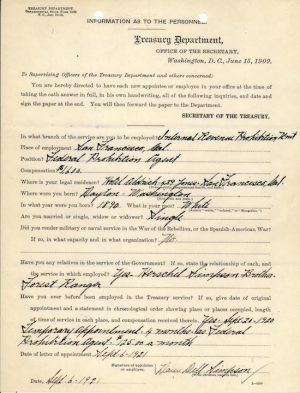 TREASURY DEPARTMENT
INFORMATION AS TO THE PERSONNEL
Treasury Department,
OFFICE OF THE SECRETARY,
Washington, D. C., June 15, 1909.
To Supervising Officers of the Treasury Department and others concerned:
You are hereby directed to have each new appointee or employee in your office at the time of
taking the oath answer in full, in his own handwriting, all of the following inquiries, and date and
sign the paper at the end. You will then forward the paper to the Department.
SECRETARY OF THE TREASURY.
In what branch of the service are you to be employed? Internal Revenue Prohibition Unit
Place of employment San Francisco, Cal.
Position? Federal Prohibition Agent
Compensation?
Where is your legal residence? Hotel San Francisco, Cal.
Where were you born? Dayton - Washington
In what year were you born? 1890. What is your race? White
Are you married or single, widow or widower? Single
Did you render military or naval service in the War of the Rebellion, or the Spanish-American War?
If so, in what capacity and in what organization? No.
Have you any relatives in the service of the Government? If so, state the relationship of each, and
the service in which employed? Yes - Herschel Simpson Brother
Forest Ranger
Have you ever before been employed in the Treasury service? If so, give date of original
appointment and a statement in chronological order showing place or places occupied, length
of time of service in each place, and compensation received therein. Yes - Sept 21 - 1920
Temporary Appointment - 4 months as Federal
Prohibition Agent a month
Date of letter of appointment Sept. 6 - 1921
Signature of appointee
or employee, Simpson
Date, Sept. 6 - 1921